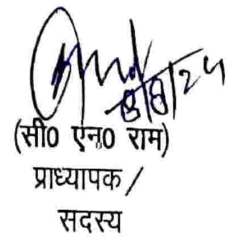 (सी0 एन0 राम)
प्राध्यापक /
सदस्य